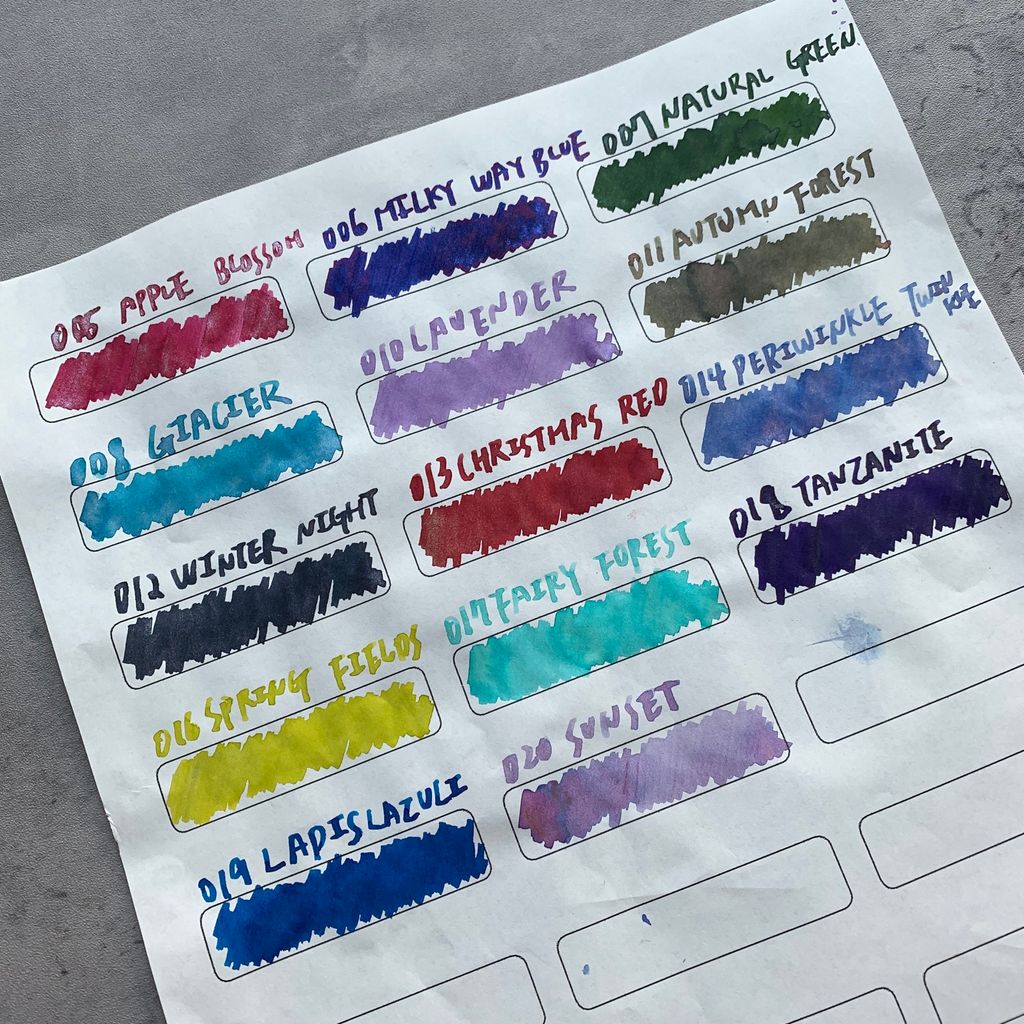 005 APPLE BLOSSOM
006 MILKY WAY BLUE
007 NATURAL GREEN
008 GLACIER
010 LAVENDER
011 AUTUMN FOREST
012 WINTER NIGHT
013 CHRISTMAS RED
014 PERIWINKLE TWIN
KLE
016 SPRING FIELDS
017 FAIRY FOREST
018 TANZANITE
019 LAPISLAZULI
020 SUNSET